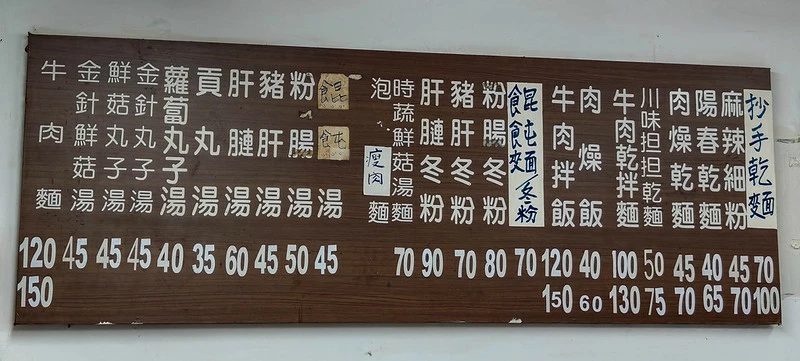 抄手乾麵 70 100
麻辣細粉 45 70
陽春乾麵 40 65
肉燥乾麵 45 70
川味担担乾麵 50 75
牛肉乾拌麵 100 130
肉燥飯 40 60
牛肉拌飯 120 150
餛飩麵/冬粉 70
粉腸冬粉 80
豬肝冬粉 70
肝腱冬粉 90
時蔬鮮菇湯麵 70
泡瘦肉麵
餛飩湯 45
粉腸湯 50
豬肝湯 45
肝腱湯 60
貢丸湯 35
蘿蔔丸子湯 40
金針丸子湯 45
鮮菇丸子湯 45
金針鮮菇湯 45
牛肉麵 120 150